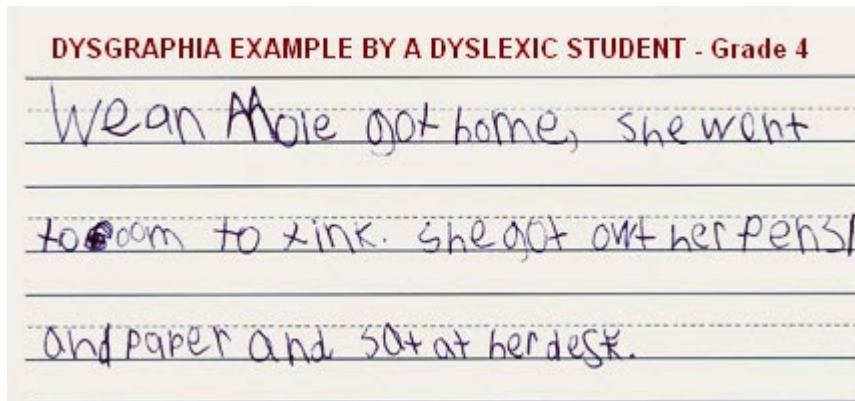 DYSGRAPHIA EXAMPLE BY A DYSLEXIC STUDENT - Grade 4
Wean got home, she went
to room to tink. she got owt her pensl
and paper and sat at her desk.